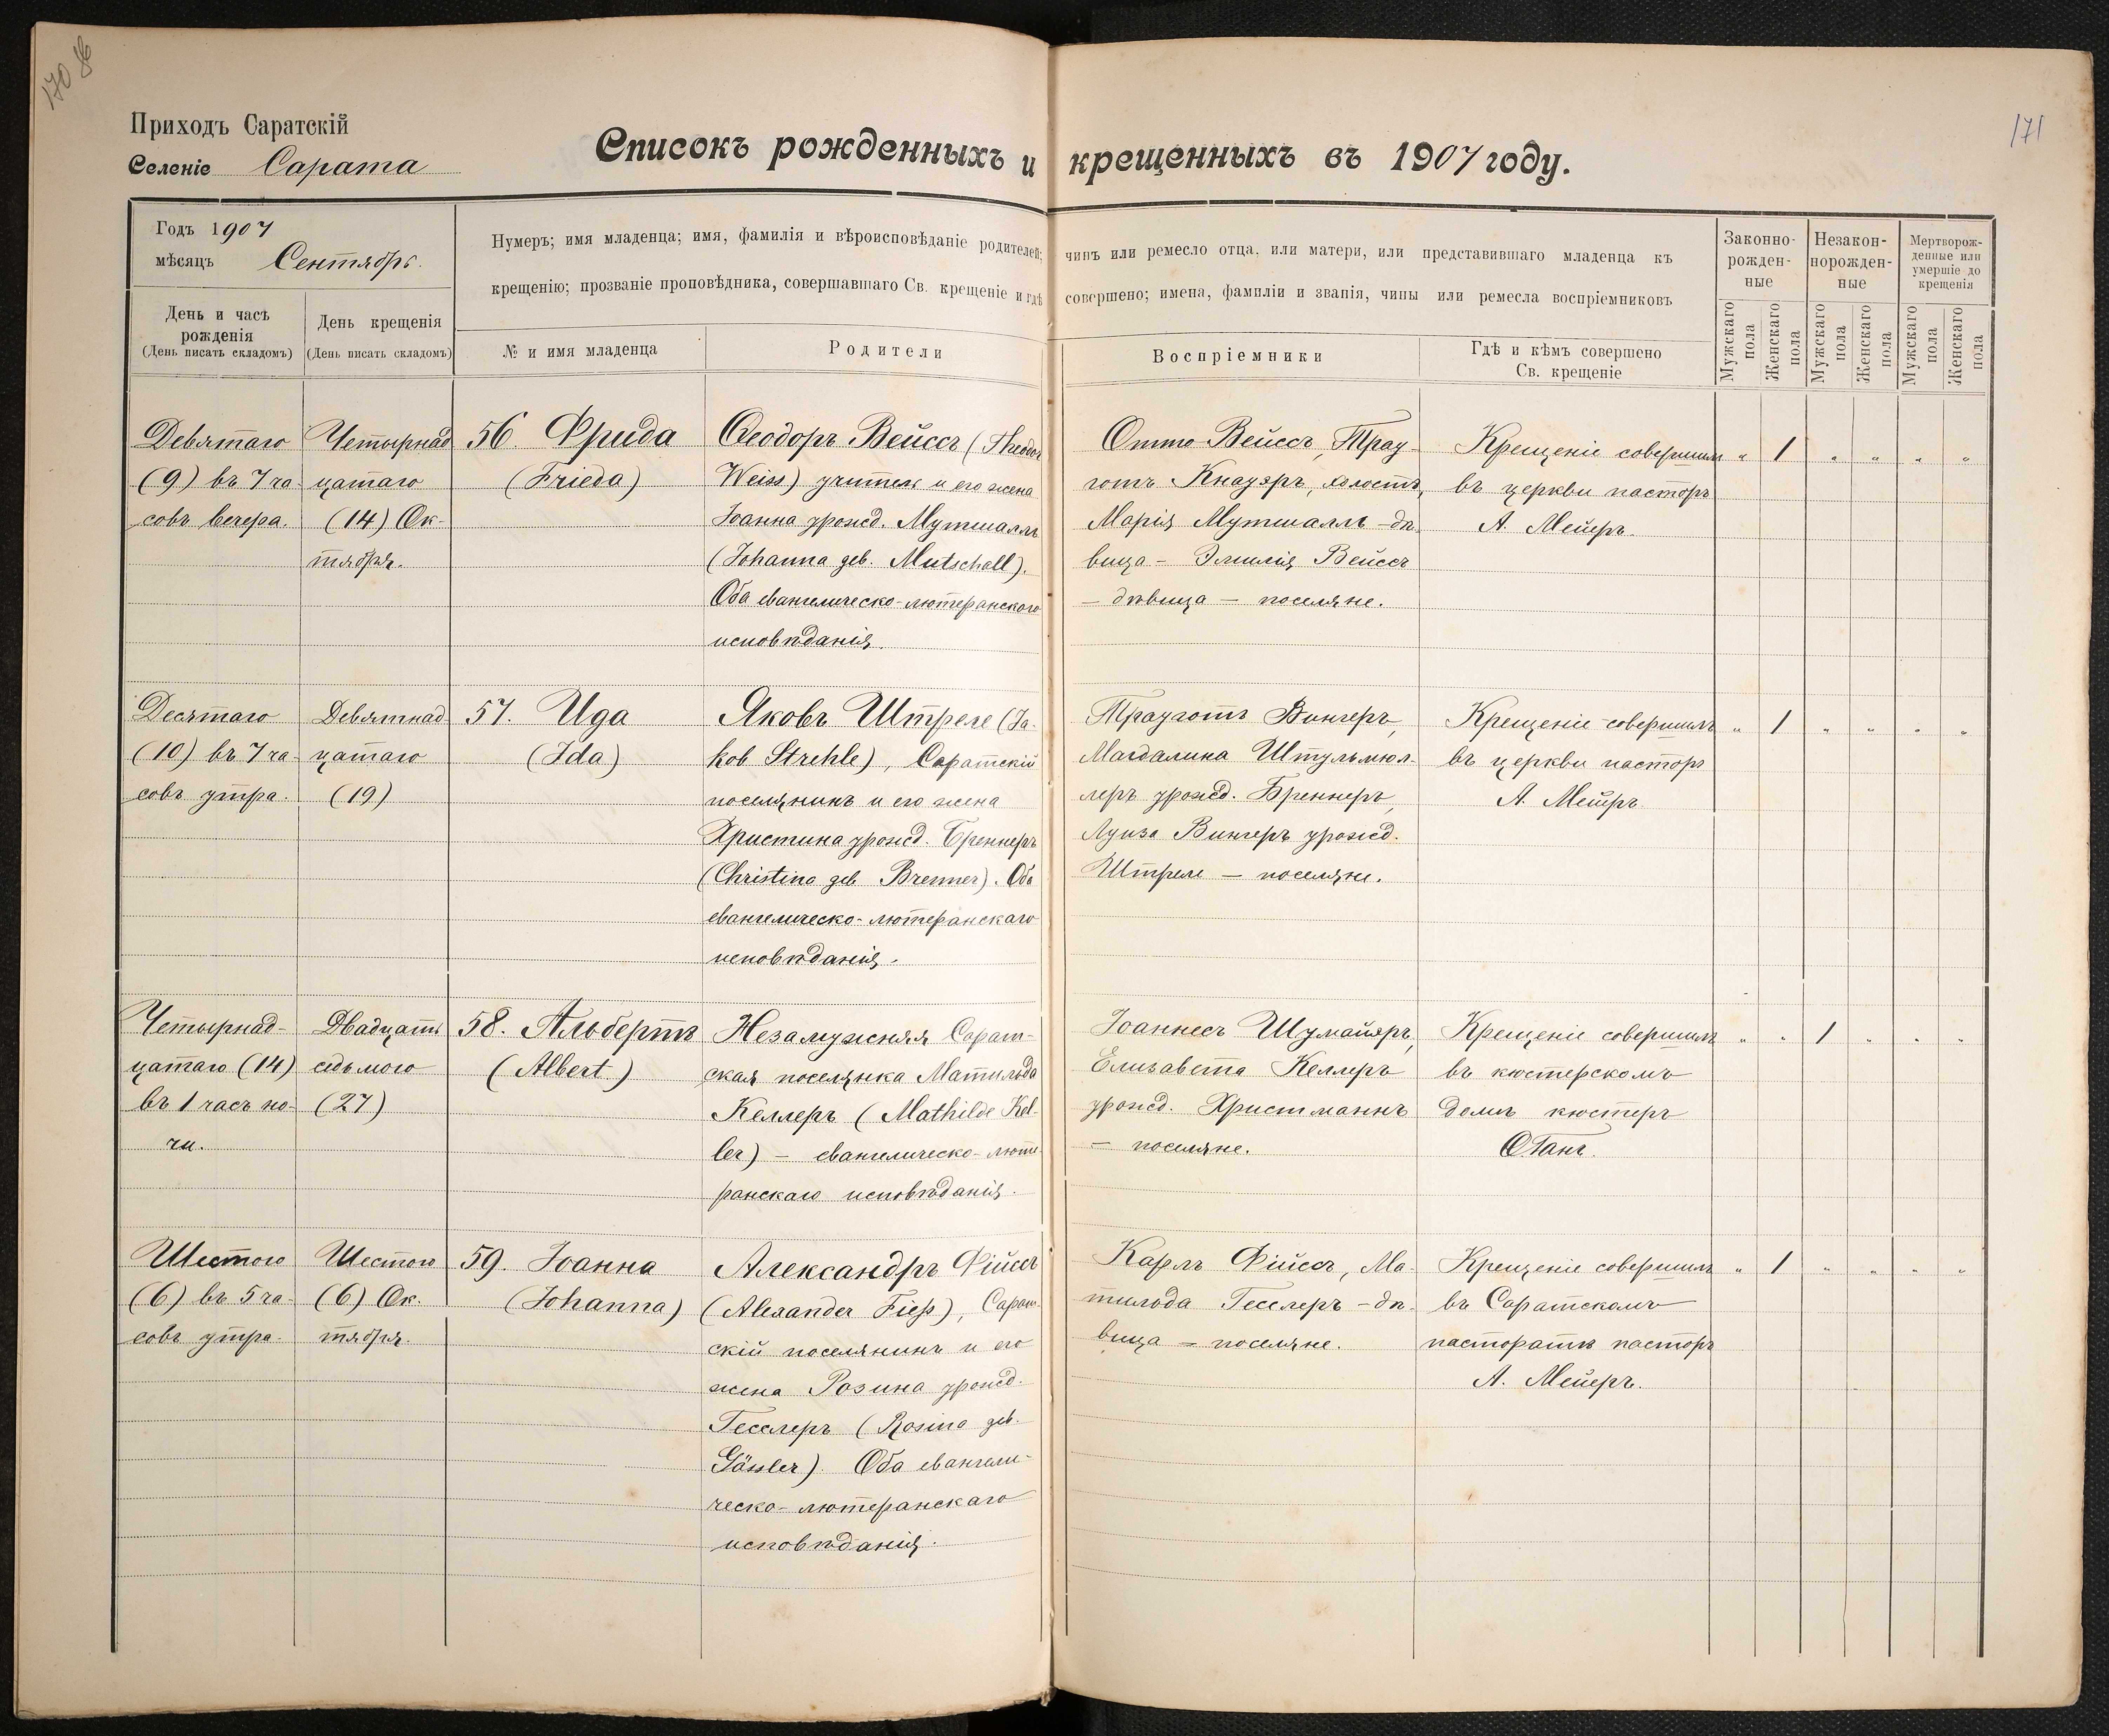 170 об
171
Приходъ Саратскій
Селеніе Сарата
Списокъ рожденныхъ и крещенныхъ въ 1907 году.
Годъ 1907
мѣсяцъ Сентябрь.
Нумеръ; имя младенца; имя, фамилія и вѣроисповѣданіе родителей; чинъ или ремесло отца, или матери, или представившаго младенца къ
крещенію; прозваніе проповѣдника, совершавшаго Св. крещеніе и гдѣ совершено; имена, фамиліи и званія, чины или ремесла воспріемниковъ
День и часъ
рожденія
(День писать складомъ)
День крещенія
(День писать складомъ)
№ и имя младенца
Родители
Воспріемники
Гдѣ и кѣмъ совершено
Св. крещеніе
Законно-
рожден-
ные
Незакон-
норожден-
ные
Мертворож-
денные или
умершіе до
крещенія
Мужскаго пола
Женскаго пола
Мужскаго пола
Женскаго пола
Мужскаго пола
Женскаго пола
Девятаго
(9) въ 7 ча-
совъ вечера.
Четырнад
цатаго
(14) Ок-
тября.
56. Фрида
(Frieda)
Ѳеодоръ Вейссъ (Theodor
Weiss) учитель и его жена
Іоанна урожд. Мутшаллъ
(Johanna geb. Mutschall).
Оба евангелическо-лютеранскаго
исповѣданія.
Отто Вейссъ, Трау-
готъ Кнауэръ, холостъ,
Марія Мутшаллъ - дѣ-
вица - Эмилія Вейссъ
- дѣвица - поселяне.
Крещеніе совершилъ
въ церкви пасторъ
А. Мейеръ.
" 1 " " " "
Десятаго
(10) въ 7 ча-
совъ утра.
Девятнад
цатаго
(19)
57. Ида
(Ida)
Яковъ Штреле (Ja-
kob Strehle), Саратскій
поселянинъ и его жена
Христина урожд. Бреннеръ
(Christina geb. Brenner). Оба
евангелическо-лютеранскаго
исповѣданія.
Трауготъ Вингеръ,
Магдалина Штульмюл-
леръ урожд. Бреннеръ,
Луиза Вингеръ урожд.
Штреле - поселяне.
Крещеніе совершилъ
въ церкви пасторъ
А. Мейеръ.
" 1 " " " "
Четырнад-
цатаго (14)
въ 1 часъ но-
чи.
Двадцать
седьмого
(27)
58. Альбертъ
(Albert)
Незамужняя Сарат-
ская поселянка Матильда
Келлеръ (Mathilde Kel-
ler) - евангелическо-люте-
ранскаго исповѣданія.
Іоаннесъ Шумайэръ,
Елизавета Келлеръ
урожд. Христманнъ
- поселяне.
Крещеніе совершилъ
въ кюстерскомъ
домѣ кюстеръ
" " 1 " " "
Шестого
(6) въ 5 ча-
совъ утра.
Шестого
(6) Ок-
тября.
59. Іоанна
(Johanna)
Александръ Фійссъ
(Alexander Fieß), Сарат-
скій поселянинъ и его
жена Розина урожд.
Гесслеръ (Rosina geb.
Gässler). Оба евангели-
ческо-лютеранскаго
исповѣданія.
Карлъ Фійссъ, Ма-
тильда Гесслеръ - дѣ-
вица - поселяне.
Крещеніе совершилъ
въ Саратскомъ
пасторатѣ пасторъ
А. Мейеръ.
" 1 " " " "